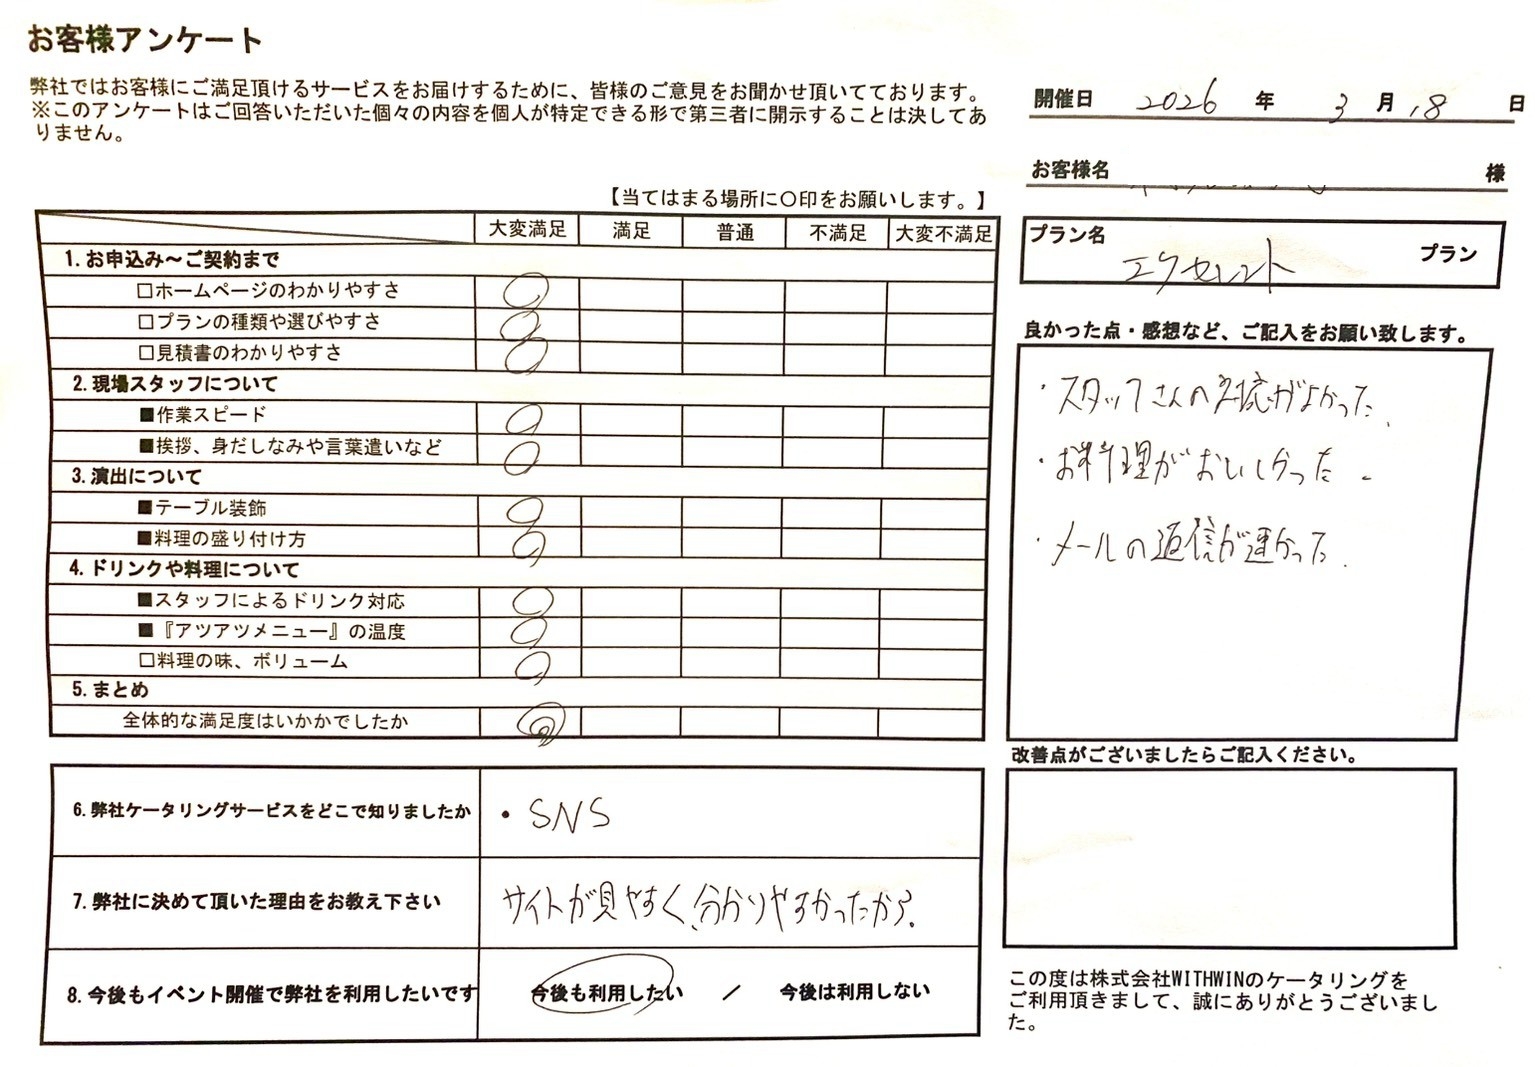 お客様アンケート
弊社ではお客様にご満足頂けるサービスをお届けするために、皆様のご意見をお聞かせ頂いてております。
※このアンケートはご回答いただいた個々の内容を個人が特定できる形で第三者に開示することは決してあ
りません。
開催日 2026 年 3 月 18 日
お客様名 様
【当てはまる場所に〇印をお願いします。】
大変満足 満足 普通 不満足 大変不満足
プラン名 エクセレント プラン
1.お申込み～ご契約まで
□ホームページのわかりやすさ
□プランの種類や選びやすさ
□見積書のわかりやすさ
2.現場スタッフについて
■作業スピード
■挨拶、身だしなみや言葉遣いなど
3.演出について
■テーブル装飾
■料理の盛り付け方
4.ドリンクや料理について
■スタッフによるドリンク対応
■『アツアツメニュー』の温度
□料理の味、ボリューム
5.まとめ
全体的な満足度はいかかでしたか
良かった点・感想など、ご記入をお願い致します。
・スタッフさんの対応がよかった.
・お料理がおいしかった.
・メールの返信が速かった.
改善点がございましたらご記入ください。
6.弊社ケータリングサービスをどこで知りましたか
・SNS
7.弊社に決めて頂いた理由をお教え下さい
サイトが見やすく、分かりやすかったから.
8.今後もイベント開催で弊社を利用したいです
今後も利用したい / 今後は利用しない
この度は株式会社WITHWINのケータリングを
ご利用頂きまして、誠にありがとうございまし
た。